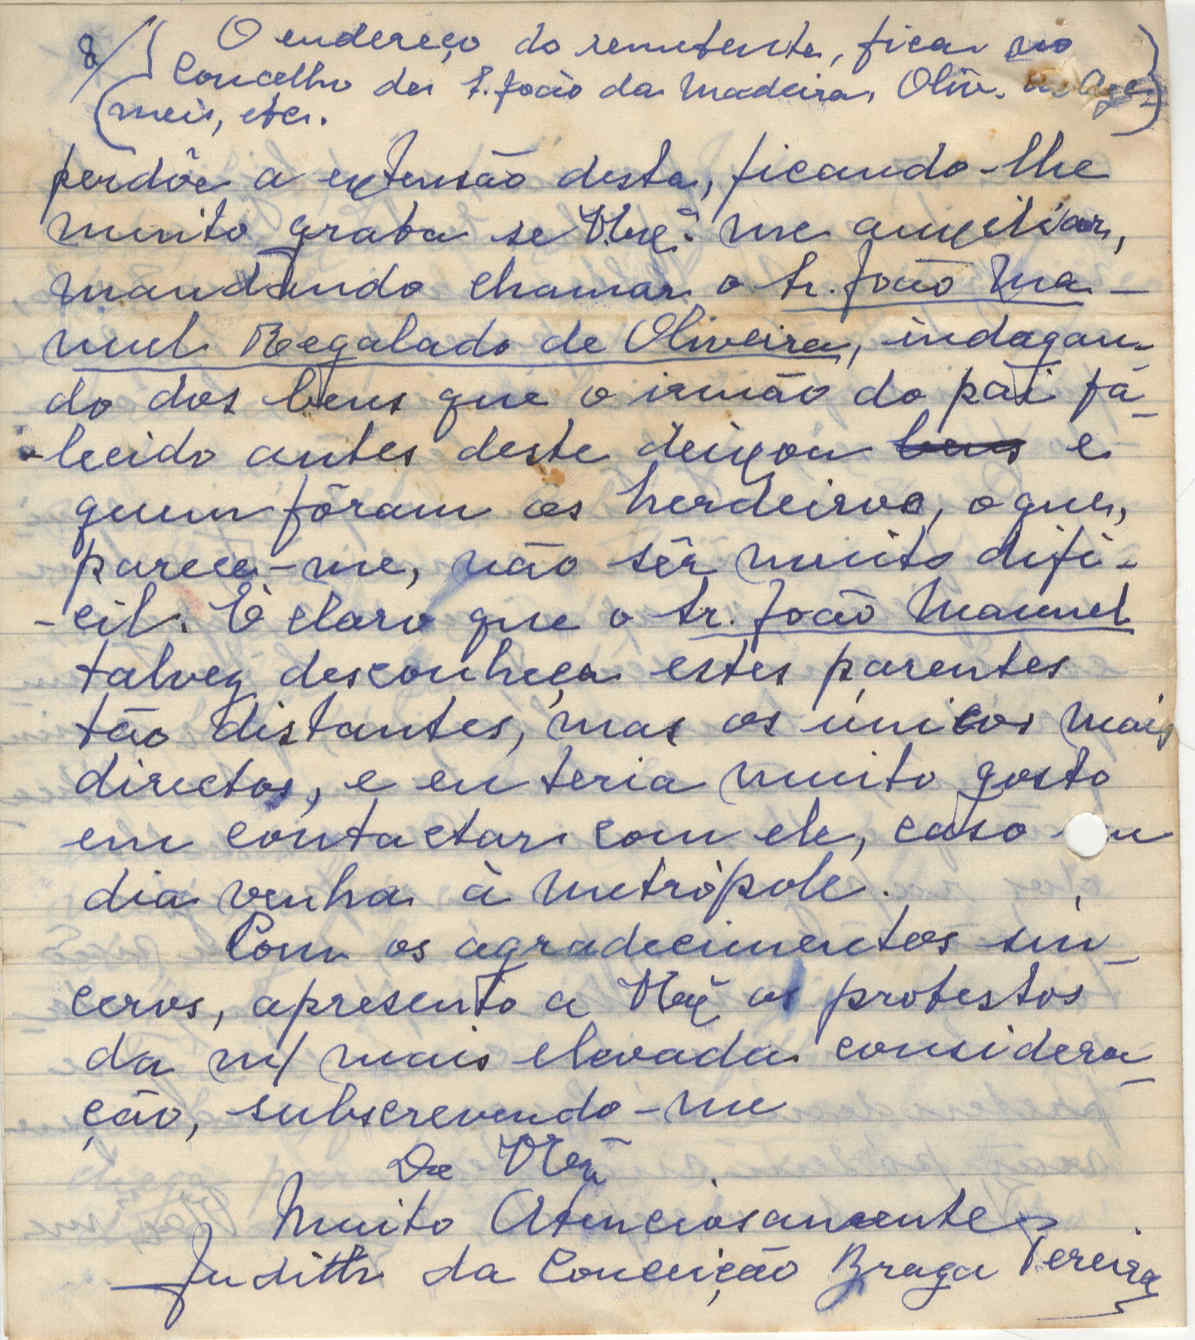 8/ O endereço do remetente, fica no
Concelho de S. João da Madeira, Oliv. de Aze-
meis, etc.
perdôe a extensão desta, ficando-lhe
muito grata se V. Exª. me auxiliar,
mandando chamar o Sr. João Ma-
nuel Regalado de Oliveira, indagan-
do dos bens que o irmão do pai fa-
-lecido antes deste deixou bens e
quem fôram os herdeiros, o que,
parece-me, não sêr muito difi-
-cil. É claro que o Sr. João Manuel
talvez desconheça estes parentes
tão distantes, mas os únicos mais
directos, e eu teria muito gosto
em contactar com ele, caso um
dia venha à metrópole.
Com os agradecimentos sin-
ceros, apresento a V. Exª os protestos
da m/ mais elevada considera-
ção, subscrevendo-me
De V. Exª
Muito Atenciosamente
Judith da Conceição Braga Pereira